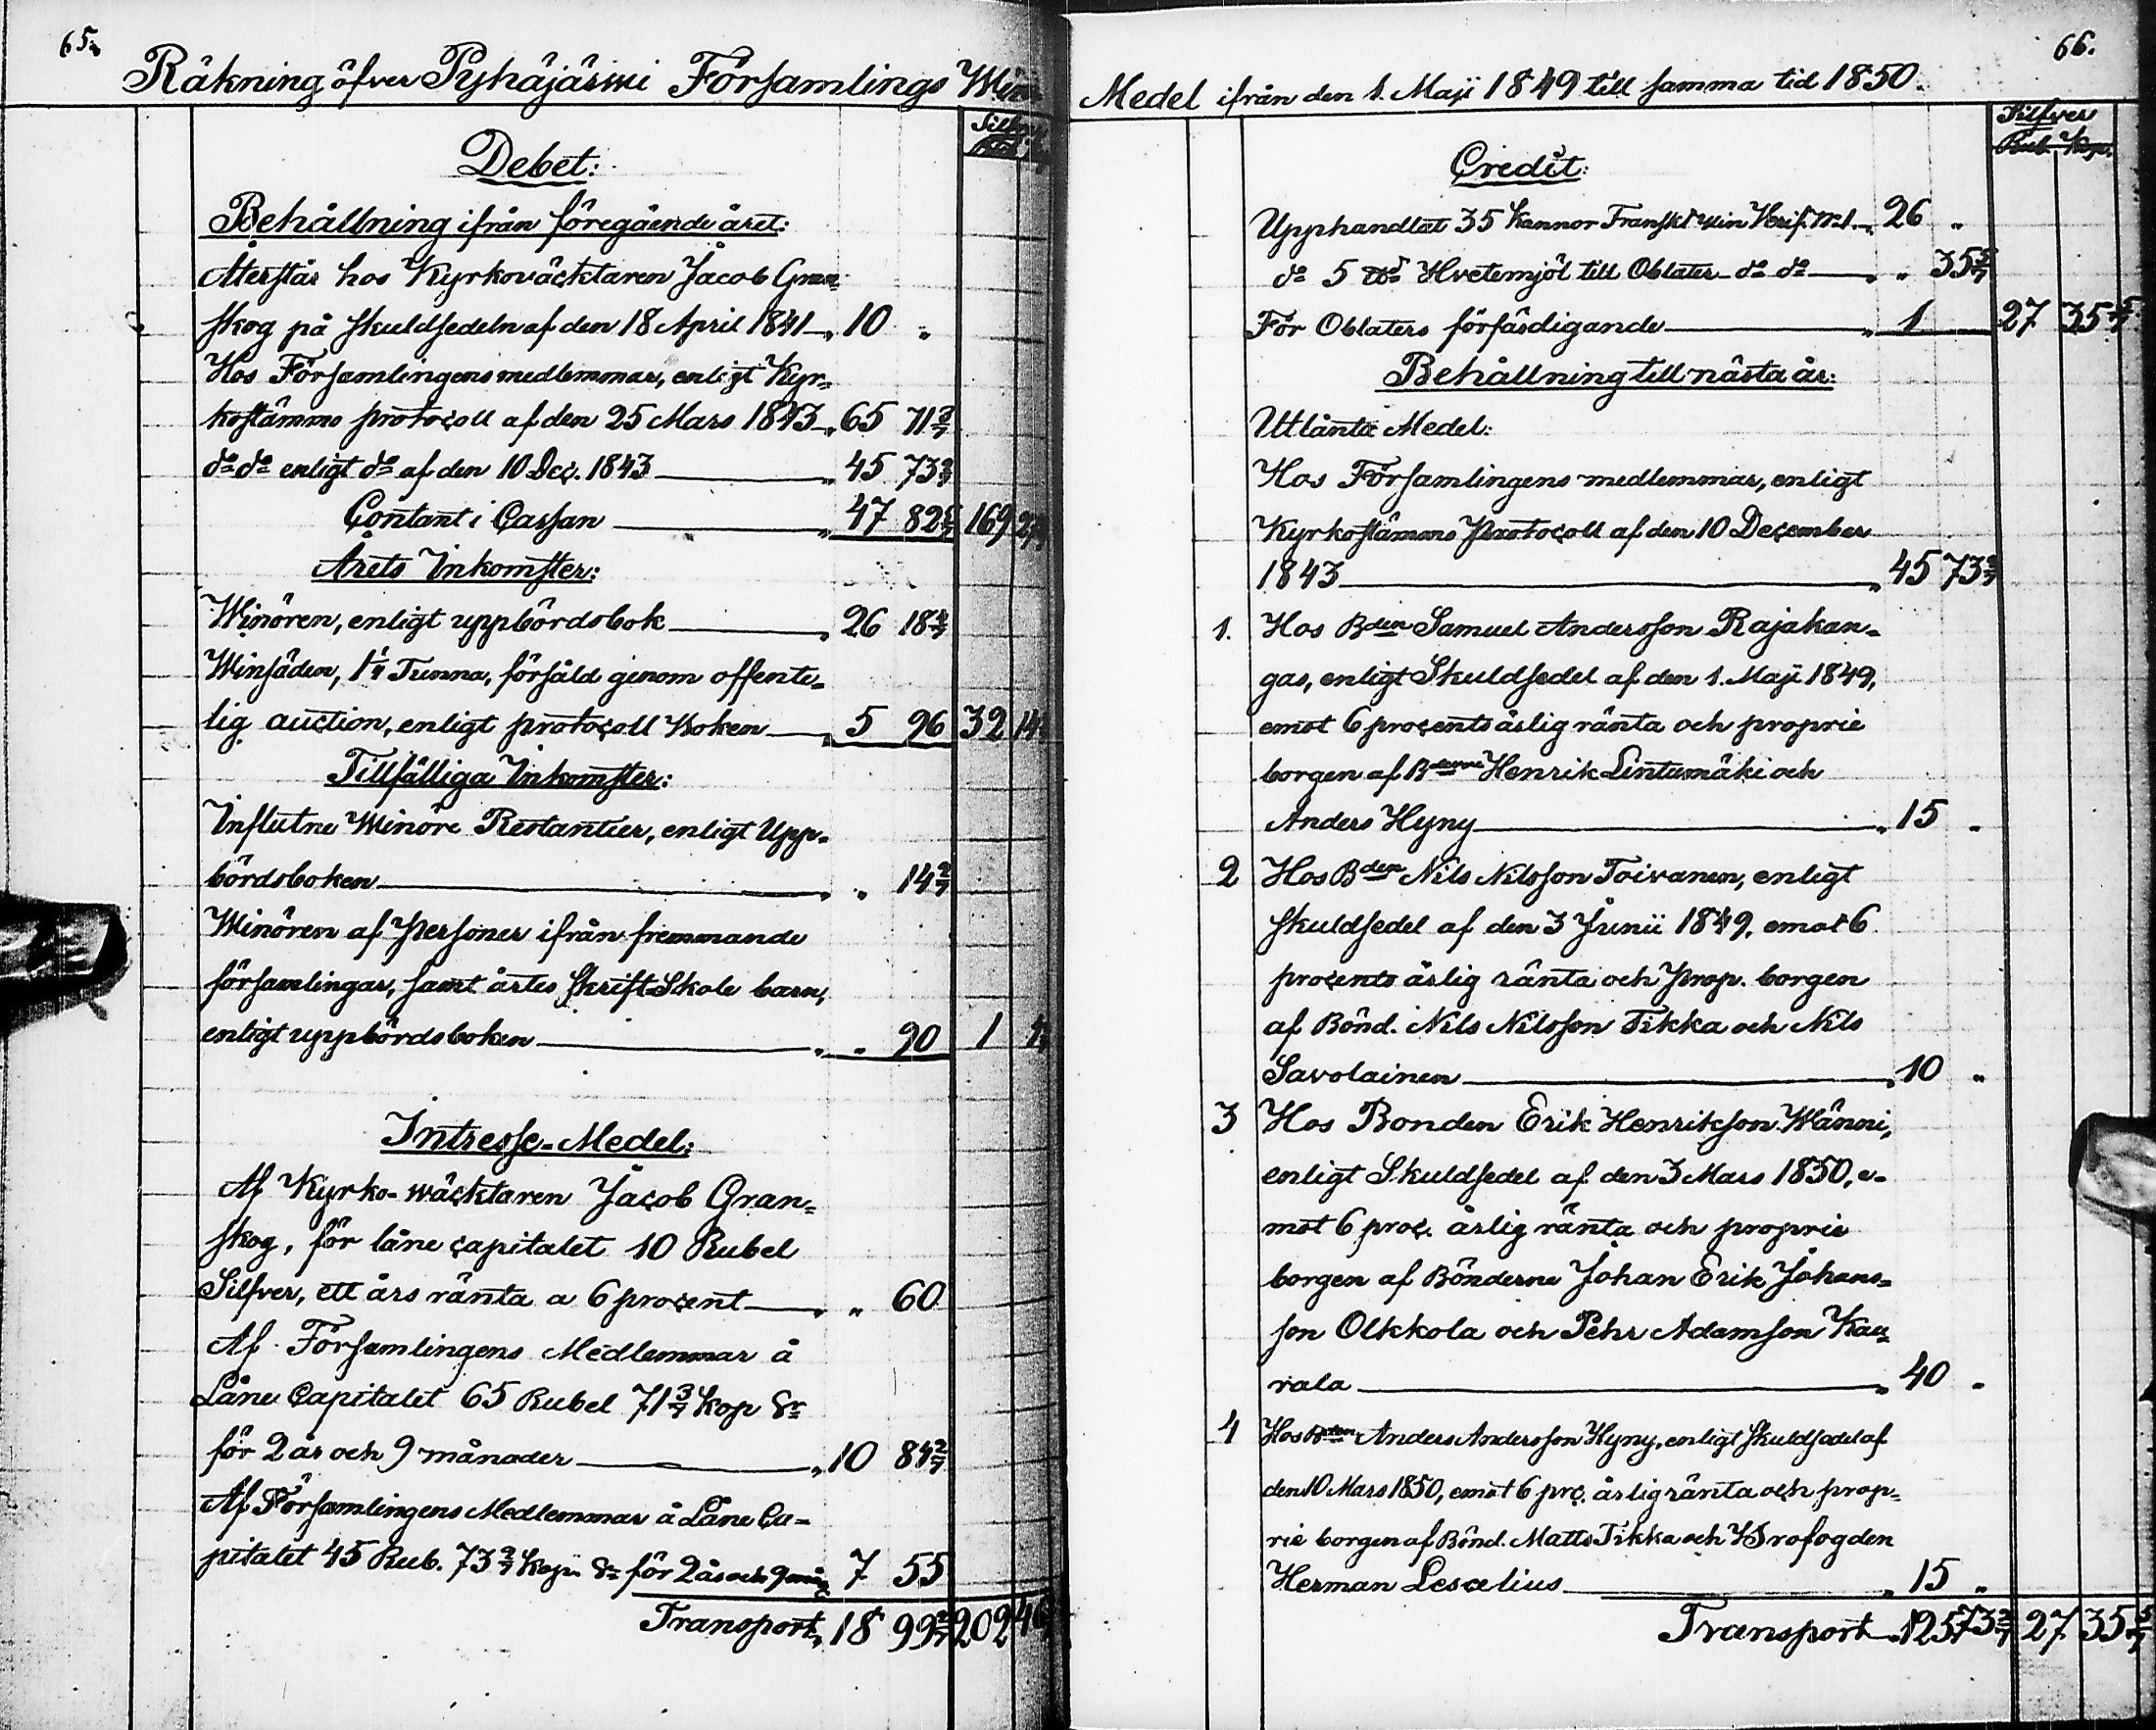 65.
Räkning öfver Pyhäjärwi Församlings Win
Silfver
Debet:
Behållning ifrån föregående året:
Återstår hos Kyrkoväcktaren Jacob Gran-
skog på skuldsedeln af den 18 April 1841 „ 10 „
Hos Församlingens medlemmar, enligt Kyr-
kostämmo protocoll af den 25 Mars 1843 „ 65 71 3/7
do do enligt do af den 10 Dec. 1843 „ 45 73 2/7
Contant i Cassan „ 47 82 169 27
Årets Inkomster:
Winören, enligt uppbördsbok „ 26 18 4/7
Winsäden, 1 1/4 Tunna, försåld genom offente-
lig auction, enligt protocoll Boken „ 5 96 32 14
Tillfälliga Inkomster:
Influtne Winöre Restantier, enligt Upp-
bördsboken „ „ 14 2/7
Winören af Personer ifrån fremmande
församlingar, samt årtes Skrift-Skole barn,
enligt uppbördsboken „ „ 90 1
Intresse-Medel:
Af Kyrko-wäcktaren Jacob Gran-
skog, för låne capitalet 10 Rubel
Silfver, ett års ränta a 6 procent „ „ 60
Af Församlingens Medlemmar å
Låne Capitalet 65 Rubel 71 3/7 Kop Sr
för 2 år och 9 månader „ 10 84 2/7
Af Församlingens Medlemmar å Låne Ca-
pitalet 45 Rub. 73 2/7 Kop. Sr för 2 år och 9 mån 7 55
Transport „ 18 99 2/7 202 46
66.
Medel ifrån den 1. Maji 1849 till samma tid 1850.
Silfver
Rub. Kop.
Credit:
Upphandlat 35 Kannor Franskt win Verif. No 1. „ 26 „
do 5 ℔ Hvetemjöl till Oblater do do „ „ 35 5/7
För Oblaters förfärdigande „ 1 27 35 5/7
Behållning till nästa år:
Utlånta Medel:
Hos Församlingens medlemmar, enligt
Kyrkostämmo Protocoll af den 10 December
1843 „ 45 73 2/7
1. Hos Bden Samuel Andersson Rajakan-
gas, enligt Skuldsedel af den 1. Maji 1849,
emot 6 procents årlig ränta och proprie
borgen af Bderne Henrik Lintumäki och
Anders Hyny „ 15 „
2 Hos Bden Nils Nilsson Toivanen, enligt
skuldsedel af den 3 Junii 1849, emot 6
procents årlig ränta och prop. borgen
af Bönd. Nils Nilsson Tikka och Nils
Savolainen „ 10 „
3 Hos Bonden Erik Henrikson Wänni,
enligt Skuldsedel af den 3 Mars 1850, e-
mot 6 proc. årlig ränta och proprie
borgen af Bönderne Johan Erik Johans-
son Olkkola och Pehr Adamson Kau-
rala „ 40 „
4 Hos Bden Anders Andersson Hyny, enligt skuldsedel af
den 10 Mars 1850, emot 6 prc. årlig ränta och prop-
rie borgen af Bönd. Matts Tikka och Profogden
Herman Lescelius „ 15 „
Transport „ 125 73 2/7 27 35 5/7